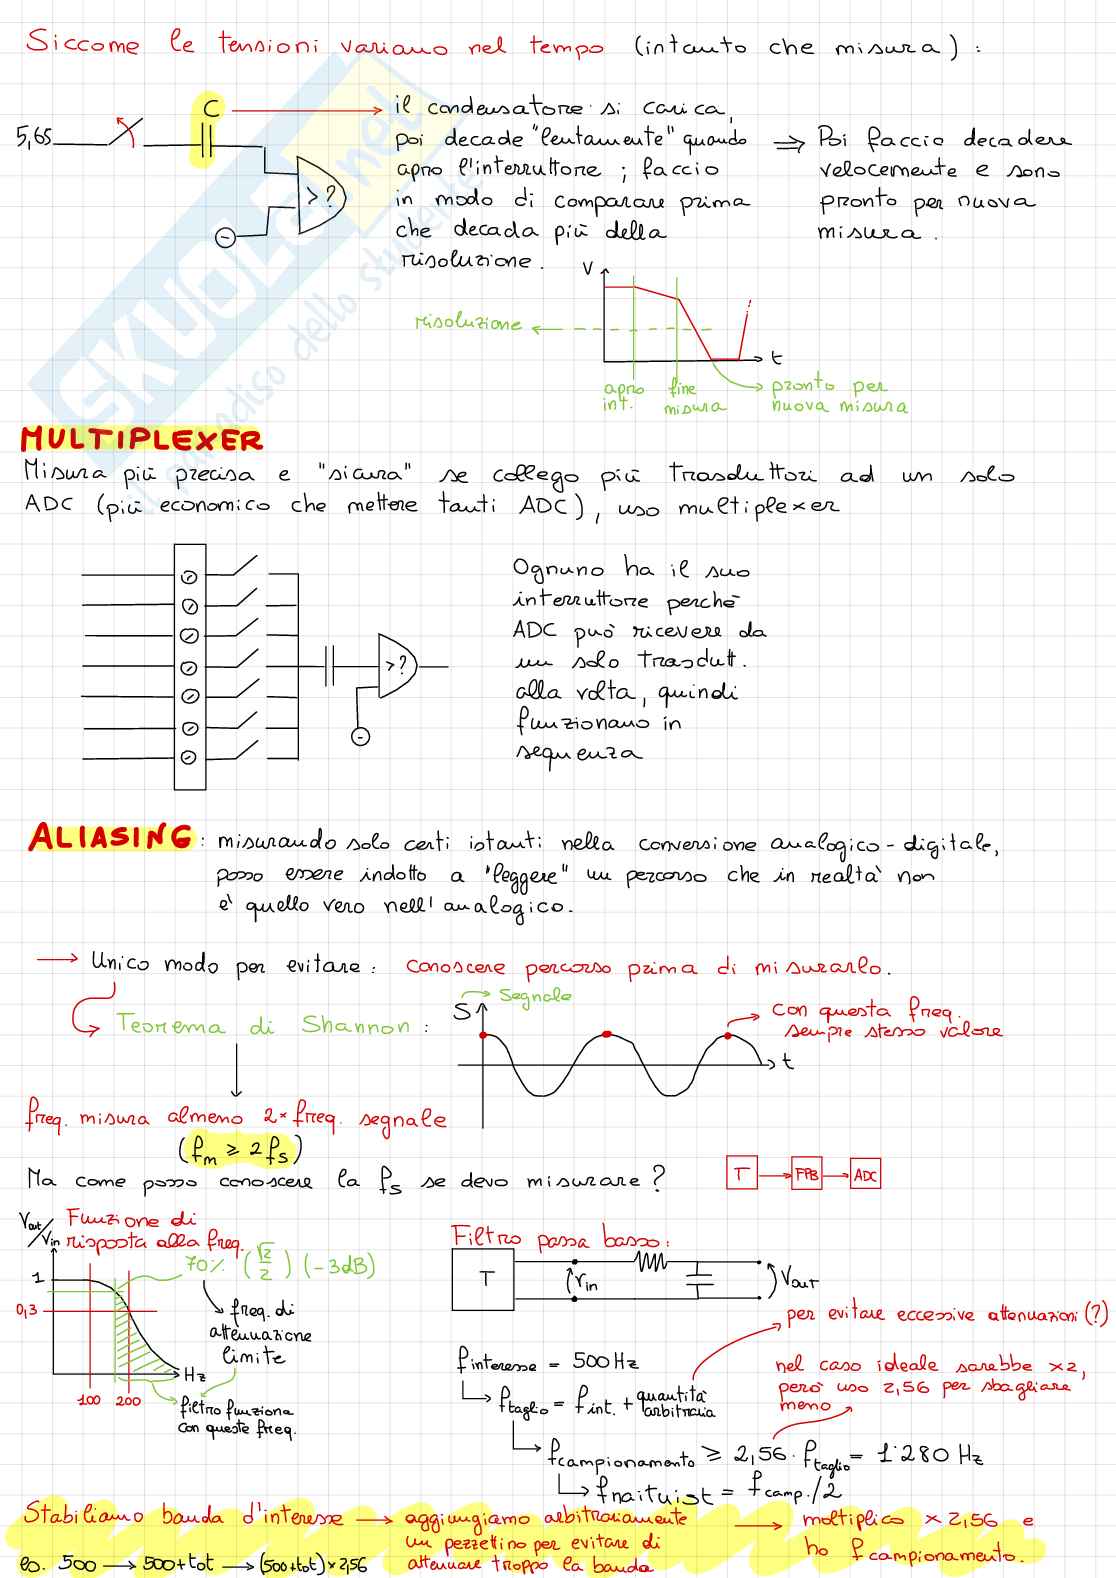 Siccome le tensioni variano nel tempo (intanto che misura) :
C
il condensatore si carica,
5,65
poi decade "lentamente" quando
apro l'interruttore ; faccio
in modo di comparare prima
che decada più della
risoluzione.
>?
-
⇒ Poi faccio decadere
velocemente e sono
pronto per nuova
misura.
V
risoluzione
t
apro
int.
fine
misura
pronto per
nuova misura
MULTIPLEXER
Misura più precisa e "sicura" se collego più trasduttori ad un solo
ADC (più economico che mettere tanti ADC), uso multiplexer
>?
-
Ognuno ha il suo
interruttore perchè
ADC può ricevere da
un solo trasdutt.
alla volta, quindi
funzionano in
sequenza
ALIASING : misurando solo certi istanti nella conversione analogico-digitale,
posso essere indotto a "leggere" un percorso che in realtà non
è quello vero nell'analogico.
→ Unico modo per evitare : conoscere percorso prima di misurarlo.
Teorema di Shannon :
S
Segnale
t
con questa freq.
sempre stesso valore
freq. misura almeno 2× freq. segnale
(fm ≥ 2 fs)
Ma come posso conoscere la fs se devo misurare ?
T → FPB → ADC
Vout/Vin
Funzione di
risposta alla freq.
70% (√2/2) (-3dB)
1
0,3
freq. di
attenuazione
limite
Hz
100 200
filtro funziona
con queste freq.
Filtro passa basso :
T
Vin
Vout
per evitare eccessive attenuazioni (?)
finteresse = 500 Hz
ftaglio = fint. + quantità arbitraria
nel caso ideale sarebbe ×2,
però uso 2,56 per sbagliare
meno
fcampionamento ≥ 2,56 · ftaglio = 1˙280 Hz
fnaituist = fcamp./2
Stabiliamo banda d'interesse → aggiungiamo arbitrariamente
un pezzettino per evitare di
attenuare troppo la banda
→ moltiplico × 2,56 e
ho fcampionamento.
es. 500 → 500+tot → (500+tot)×2,56
SKUOLA.net
il paradiso dello studente